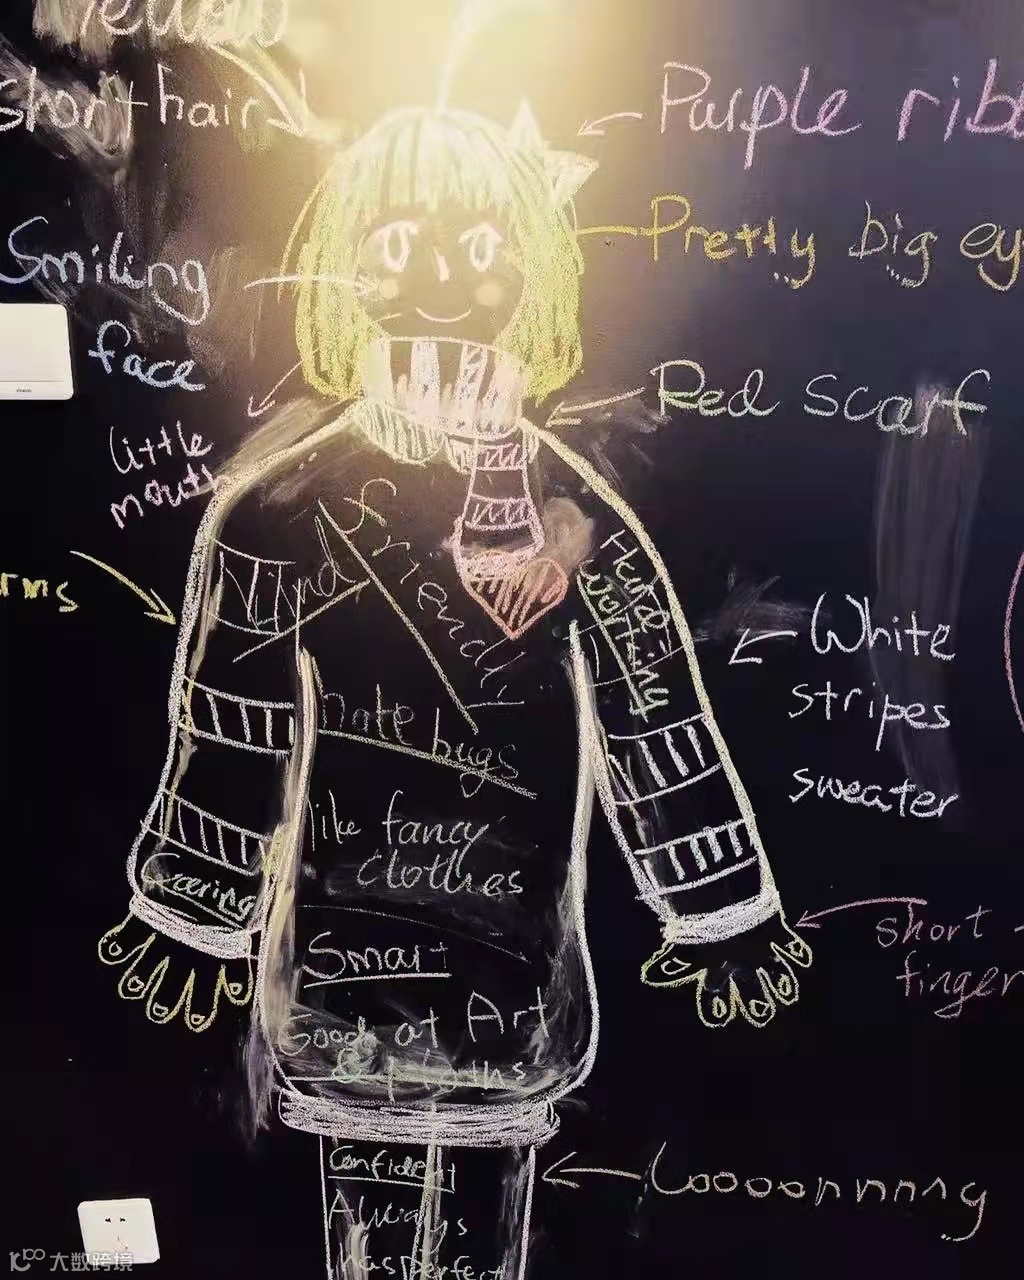 Yellow
short hair
Purple ribb
Pretty big ey
Smiling
face
Red scarf
little
mouth
rms
Friendly
Kind
Hard-
working
White
stripes
sweater
hate bugs
like fancy
clothes
Caring
Smart
short
finger
Good at Art
& Maths
Confident
Always
has perfect
Looooonnnng
100 大数跨境